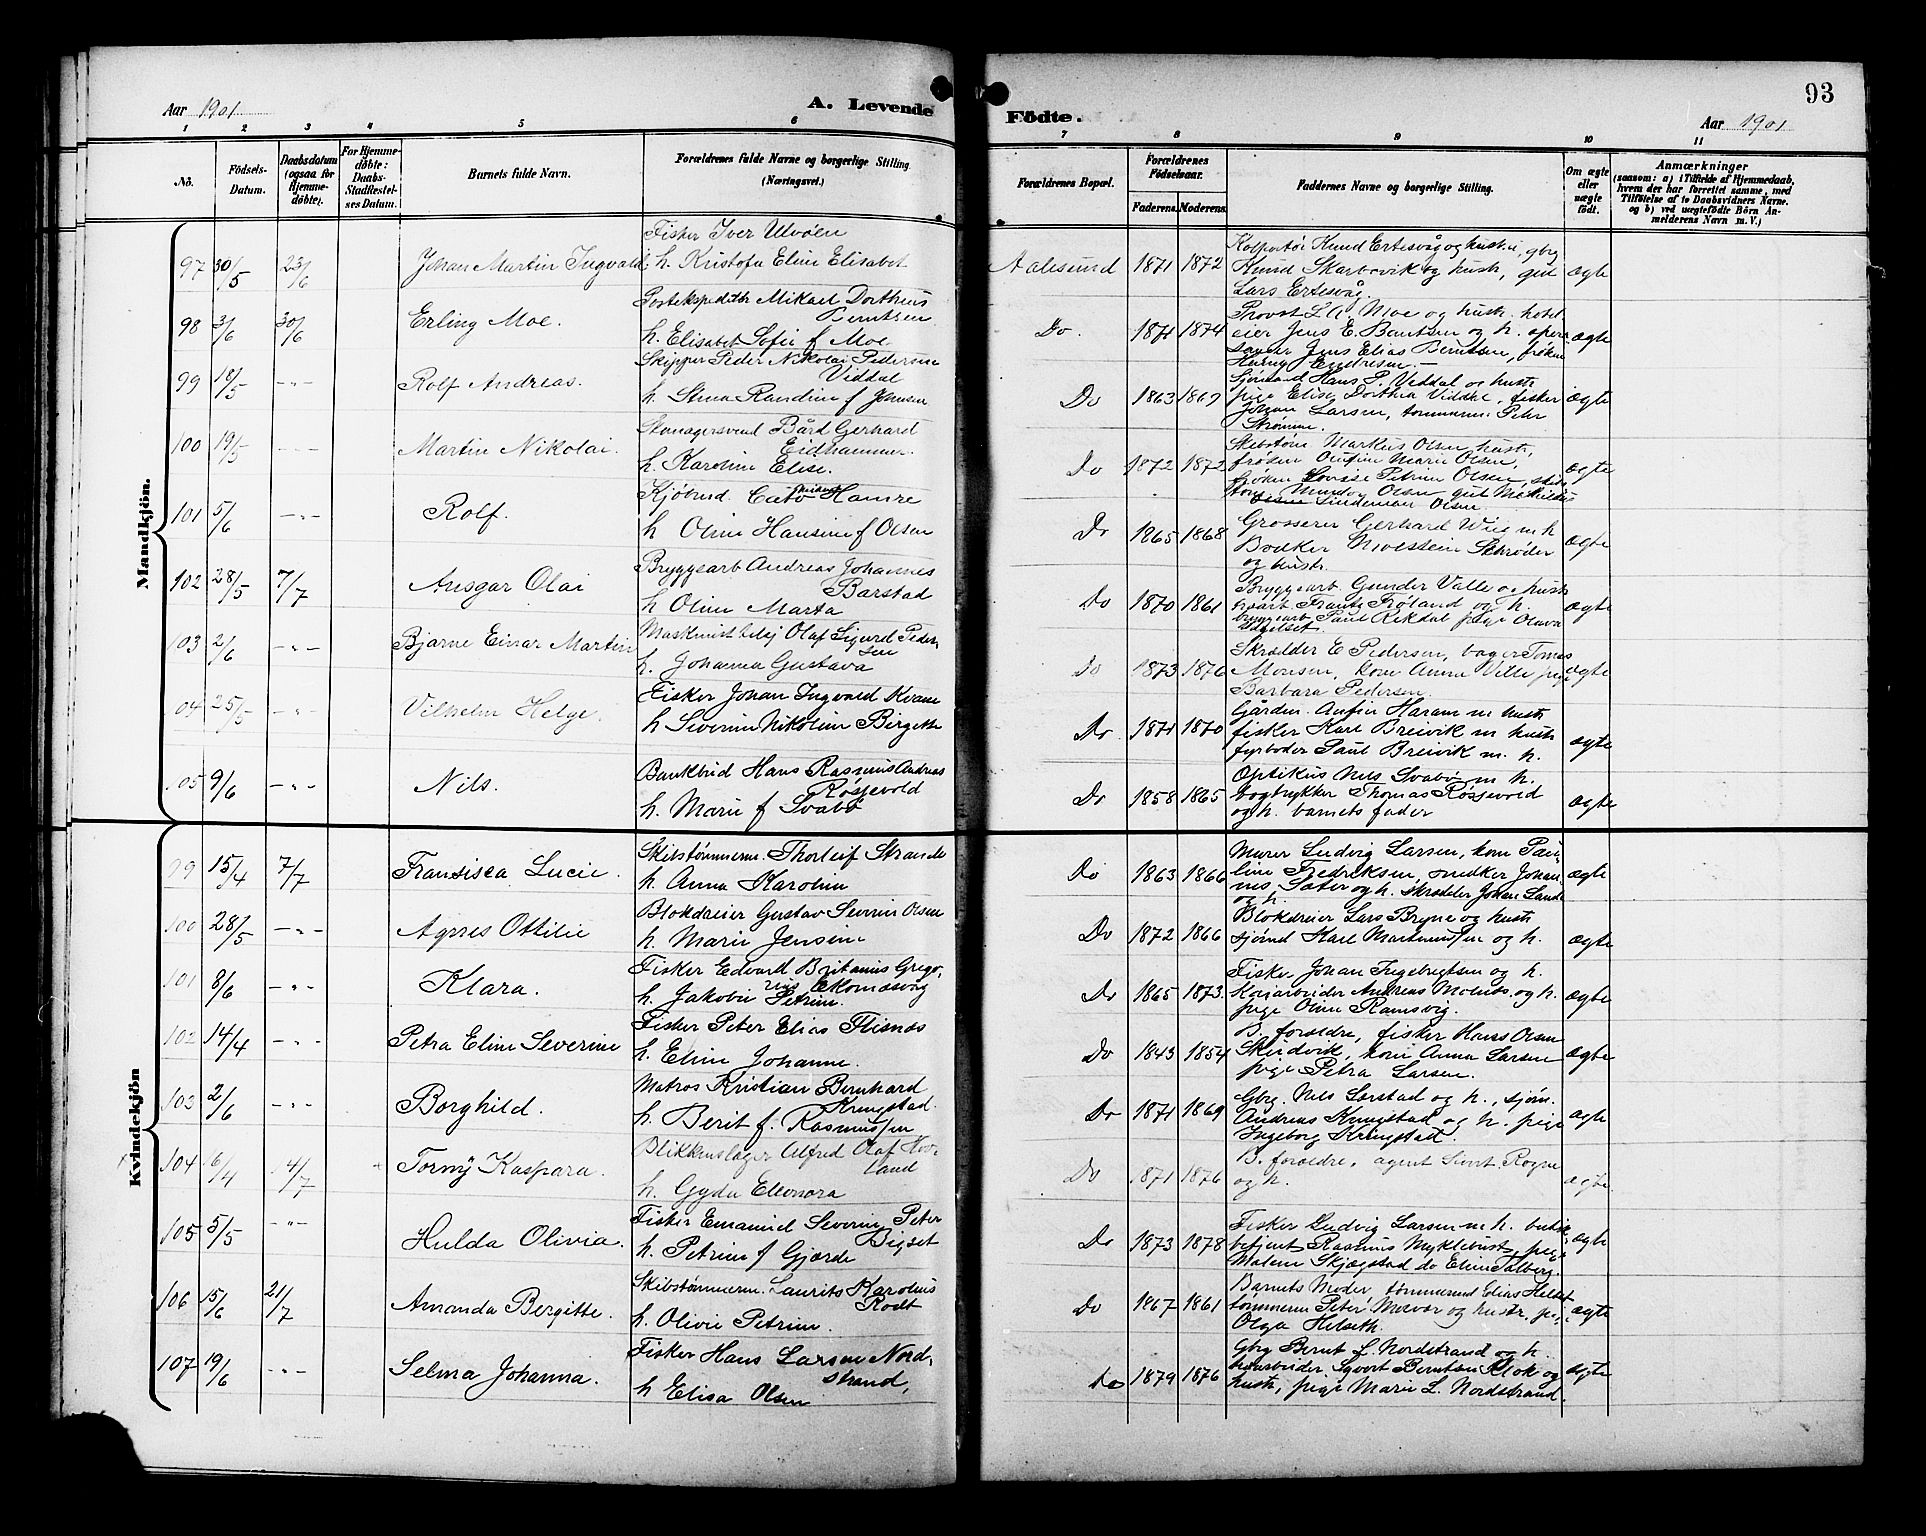 Aar 1901
A. Levende
1 2 3 4 5 6
No.
Födsels-Datum.
Daabsdatum (ogsaa for Hjemme-döbte).
For Hjemme-döbte: Daabs-Stadfæstelses Datum.
Barnets fulde Navn.
Forældrenes fulde Navne og borgerlige Stilling (Næringsvei.)
Mandkjön.
Fisker Iver Ulvöen
97 30/5 23/6 Johan Martin Ingvald h. Kristofa Eline Elisabet
Postekspeditör Mikael Dortheus
98 3/6 30/6 Erling Moe. Berntsen
h. Elisabet Sofie f Moe
Skipper Peder Nikolai Pedersen
99 18/5 -"- Rolf Andreas. Viddal
h. Stina Randine f Johnsen
Bård Gerhard
100 19/5 -"- Martin Nikolai. Eidhammer
h. Karoline Elise.
Kjöbmd. Cato Hamre
101 5/6 -"- Rolf.
h Oline Hansine f Olsen
Bryggearb Andreas Johannes
102 28/5 7/7 Ansgar Olai Barstad
h Oline Marta
103 2/6 -"- Bjarne Einar Martin Maskinist Olaf Sigurd Pedersen
h. Johanna Gustava
04 25/5 -"- Vilhelm Helge. Fisker Johan Ingvald Kvam
h Severine Nikoline Bergitte
105 9/6 -"- Nils. Bankbud Hans Rasmus Andreas
Røssevold
h. Marie f Svabø
Kvindekjön
99 15/4 7/7 Fransisca Lucie. Skibstømmerm. Thorleif Strande
h. Anna Karoline
100 28/5 -"- Agnes Ottilie Blokdreier Gustav Severin Olsen
h. Marie Jensine
101 8/6 -"- Klara. Fisker Edvard Britanius Grego-
h. Jakobie Petrine.
102 14/4 -"- Petra Eline Severine Fisker Peter Elias Flisnæs
h. Eline Johanne.
103 2/6 -"- Borghild. Matros Kristian Bernhard
Kringstad.
h. Berit f. Rasmussen
104 16/4 14/7 Tormy Kaspara. Blikkenslager Alfred Olaf Hov-
land
h. Gyda Eleonora
105 5/5 -"- Hulda Olivia. Fisker Emanuel Severin Peter
Bigset
h. Petrine f Gjærde
106 15/6 21/7 Amanda Bergitte. Skibstømmerm. Laurits Karolius
Rodt
h. Olivie Petrine.
107 19/6 -"- Selma Johanna. Fisker Hans Larsen Nord-
strand,
h Elisa Olsen
93
Födte.
Aar 1901
7 8 9 10 11
Forældrenes Bopæl.
Forældrenes Födselsaar.
Faderens. Moderens.
Faddernes Navne og borgerlige Stilling.
Om ægte eller uægte födt.
Anmærkninger
(saasom: a) i Tilfælde af Hjemmedaab, hvem der har forrettet samme, med Tilföielse af to Daabsvidners Navne. og b) ved uægtefödte Börn Anmelderens Navn m. V.)
Kolportör Knud Ertesvåg og hustru, gbrg
Aalesund 1871 1872 Knud Skarbøvik og hustr, gut ægte
Lars Ertesvåg.
Provst L. A. Moe og hustr. hotel
Do. 1871 1874 eier Jens E. Berntsen og h. opera ægte
sanger Jens Elias Berntsen, frøken
Sjömand Hans P. Viddal og hustr
Do 1863 1869 pige Elise Dorthea Viddal, fisker ægte
Johan Larsen, tømmerm. Peter
Strømme.
Skibstöm Markus Olsen hustr,
Do 1872 1872 frøken Marie Olsen, ægte
frøken Lovise Petrine Olsen,
Lindeman Olsen
Grosserer Gerhard Wiig m h
Do 1865 1868 Bødker Molstein Schrøder ægte
og hustr.
Bryggearb. Gunder Valle og hustr
Do 1870 1861 Frantz Frøland og h. ægte
bryggearb Paul Rekdal pige Olava
Skrædder E Pedersen, bager Tomas
Do 1873 1876 Monsen, kone Anna Ville pige ægte
Barbara Pedersen.
Gården. Anfin Haram m hustr
Do 1871 1870 fisker Karl Breivik m hustr ægte
fyrbøder Paul Breivik m. h.
Optikus Nils Svabø m h.
Do 1858 1865 bogtrykker Thomas Røssevold ægte
og h. barnets fader
Murer Ludvig Larsen, kone Pau-
Do 1863 1866 line Fredriksen, snedker Johan- ægte
nes Sæter og h. skrædder Johan Lande
og h.
Blokdreier Lars Bryne og hustr
Do 1872 1866 sjømd Karl Martinussen og h. ægte
Fisker Johan Ingebrigtsen og h.
Do 1865 1873. Kaiarbeider Andreas Molnes. og h. ægte
pige Oline Ramsvig.
B. forældre, fisker Hans Olsen
Do 1843 1854 Skjidvik, kone Anna Larsen ægte
pige Petra Larsen.
Gbrg. Nils Sørstad og h., sjøm.
Do 1871 1869 Andreas Kringstad og h. pige ægte
Ingeborg Kringstad.
B. forældre, agent Sivert Rogne
Do 1871 1876 og h. ægte.
Fisker Ludvig Larsen m h. butik
Do 1873 1878 betjent Rasmus Myklebust, pige ægte
Malene Skjegstad do Eline Talberg.
Barnets Moder, tømmermd Elias Helset
Do 1867 1861 tømmerm Peter Movor og hustr. pi- ægte
Olga Helseth.
Gbrg Bernt L. Nordstrand og h.
Do 1879 1876 havnarbeider Syvert Berntsen Blok og ægte
hustr, pige Marie L. Nordstrand.